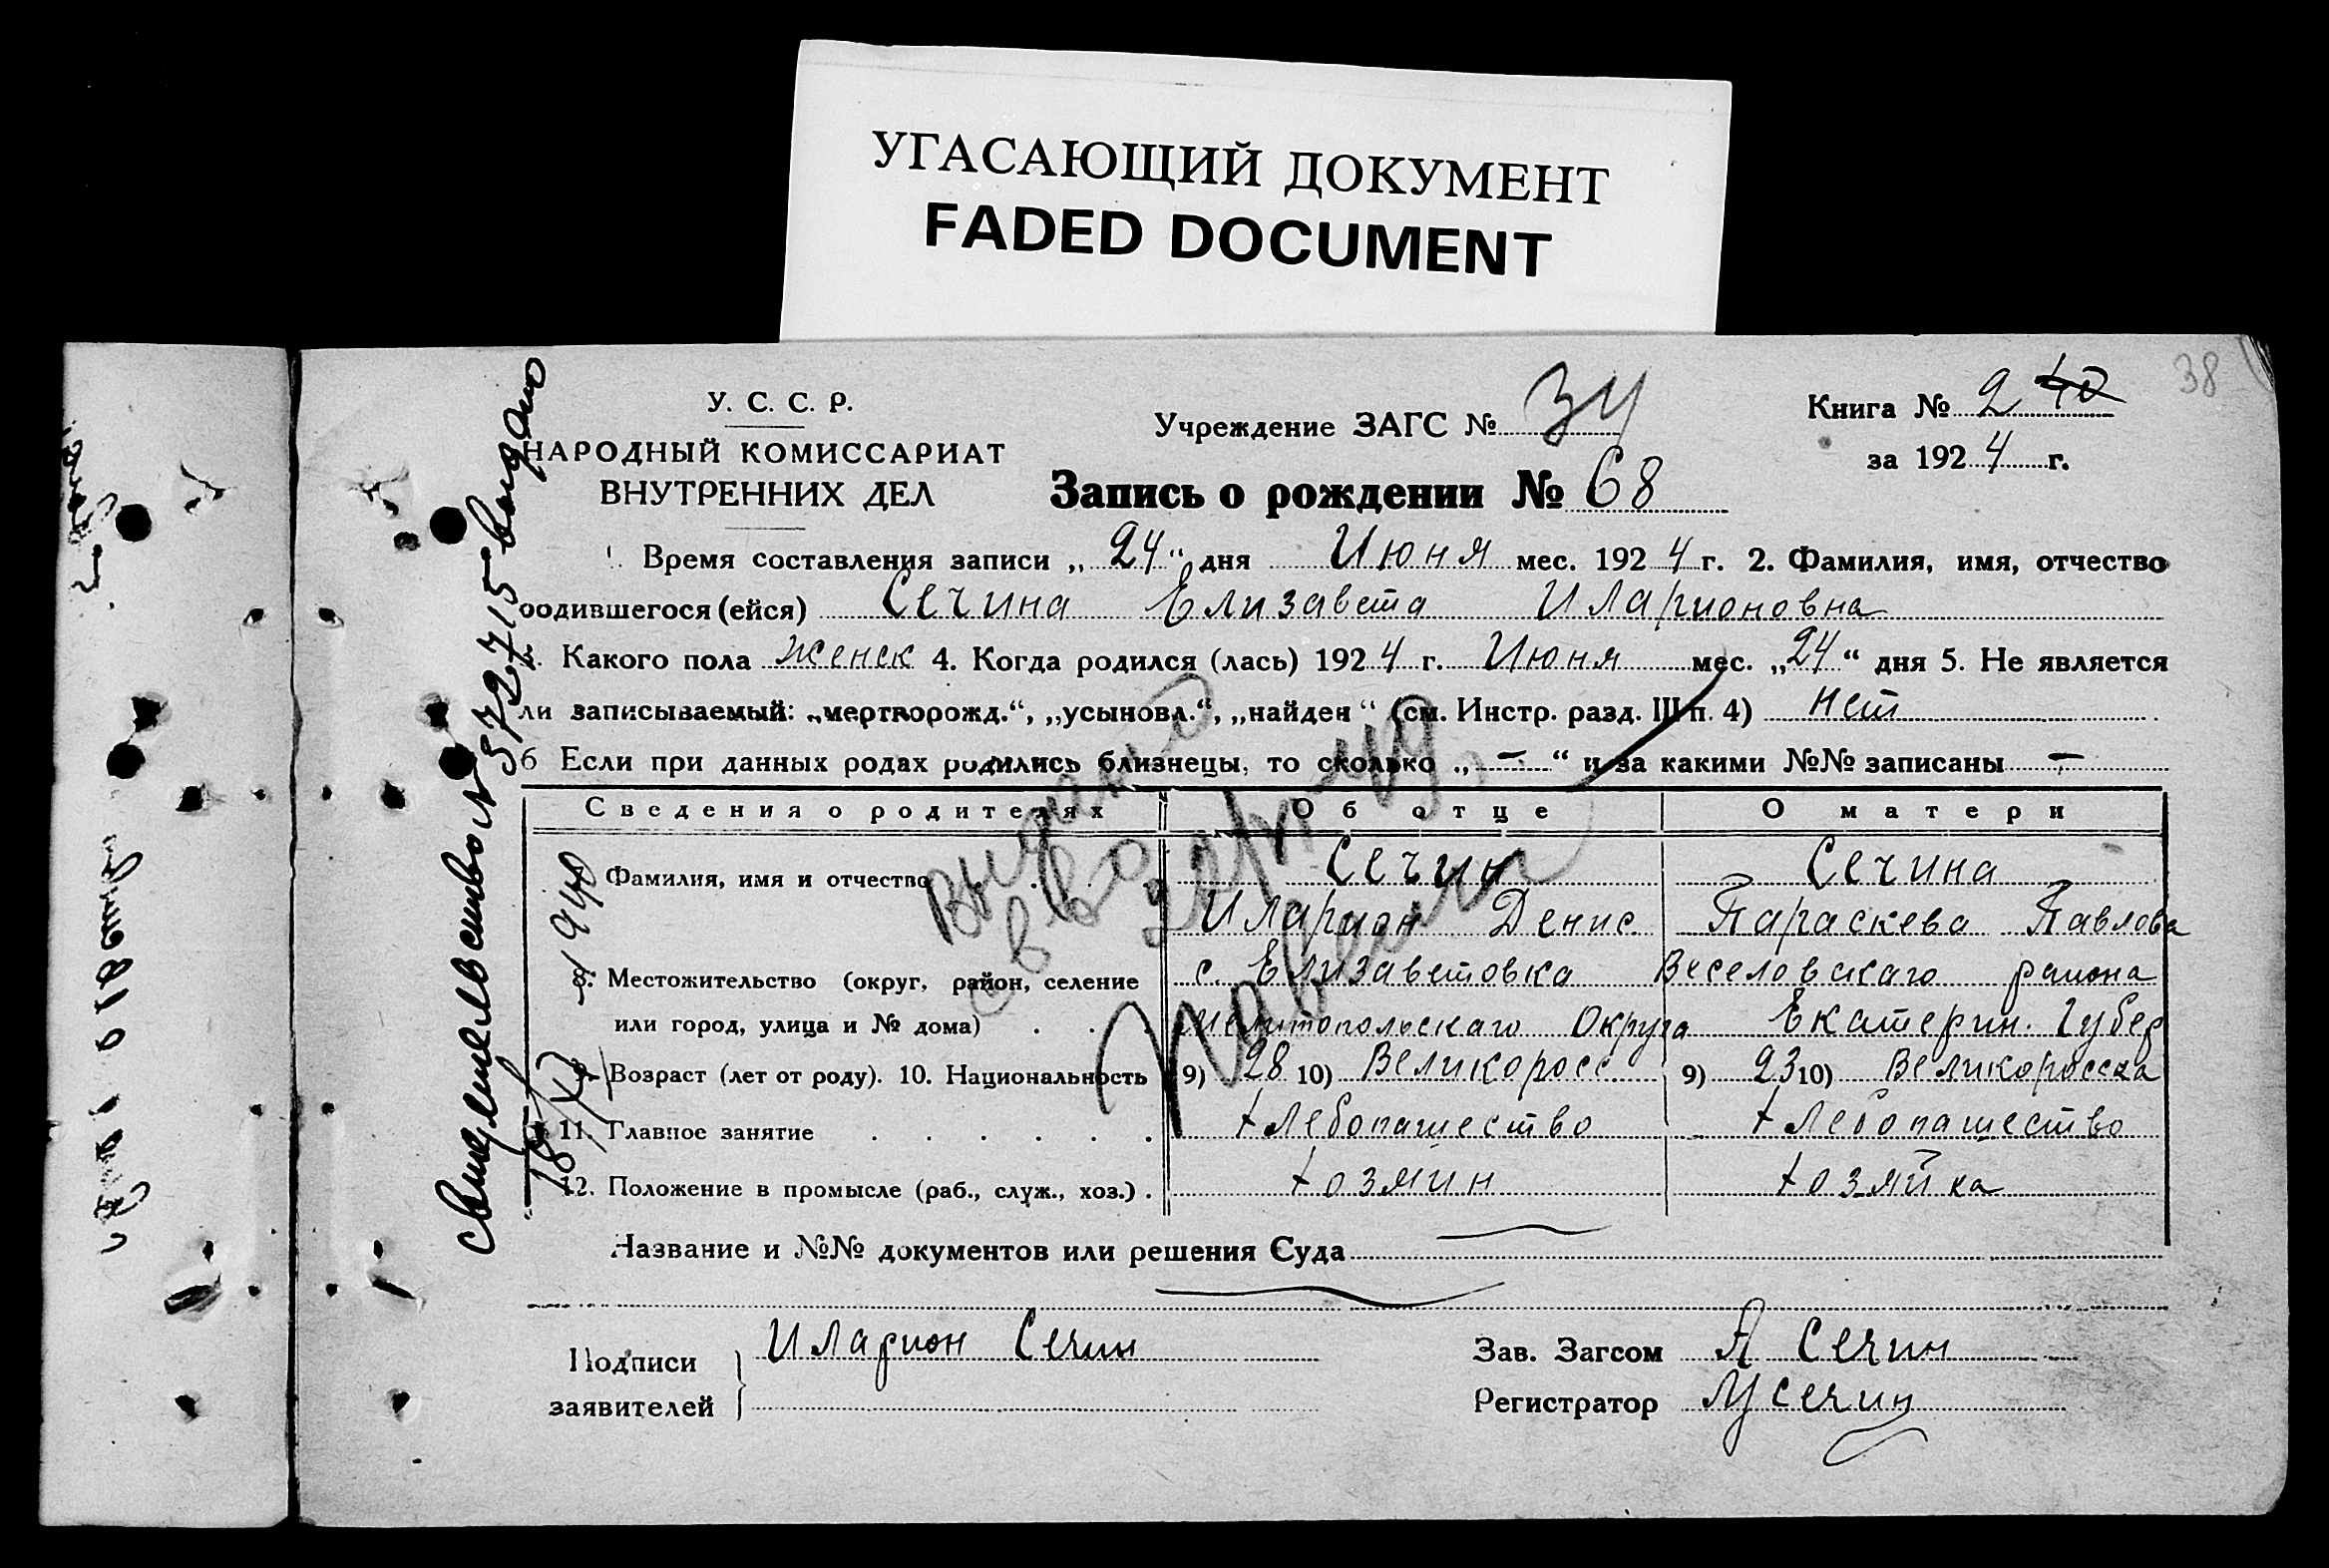 УГАСАЮЩИЙ ДОКУМЕНТ
FADED DOCUMENT
38
У. С. С. Р.
НАРОДНЫЙ КОМИССАРИАТ
ВНУТРЕННИХ ДЕЛ
Учреждение ЗАГС № 34
Книга № 2 40
за 1924 г.
Запись о рождении № 68
1. Время составления записи „24“ дня Июня мес. 1924 г. 2. Фамилия, имя, отчество
родившегося (ейся) Сечина Елизавета Иларионовна
3. Какого пола Женск 4. Когда родился (лась) 1924 г. Июня мес. „24“ дня 5. Не является
ли записываемый: „мертворожд.“, „усыновл.“, „найден“ (см. Инстр. разд. III п. 4) нет
6 Если при данных родах родились близнецы, то сколько „—“ и за какими №№ записаны —
Сведения о родителях Об отце О матери
Фамилия, имя и отчество Сечин Сечина
Иларион Денис. Параскева Павлова
8. Местожительство (округ, район, селение с. Елизаветовка Веселовскаго района
или город, улица и № дома) Мелитопольскаго Округа Екатерин. Губер
9. Возраст (лет от роду). 10. Национальность 9) 28 10) Великоросс 9) 23 10) Великоросска
11. Главное занятие Хлебопашество Хлебопашество
12. Положение в промысле (раб., служ., хоз.) Хозяин Хозяйка
Название и №№ документов или решения Суда
Подписи заявителей Иларион Сечин
Зав. Загсом Я Сечин
Регистратор Сечин
свидетельство № 572715 выдано
18/XI 1940
выдано